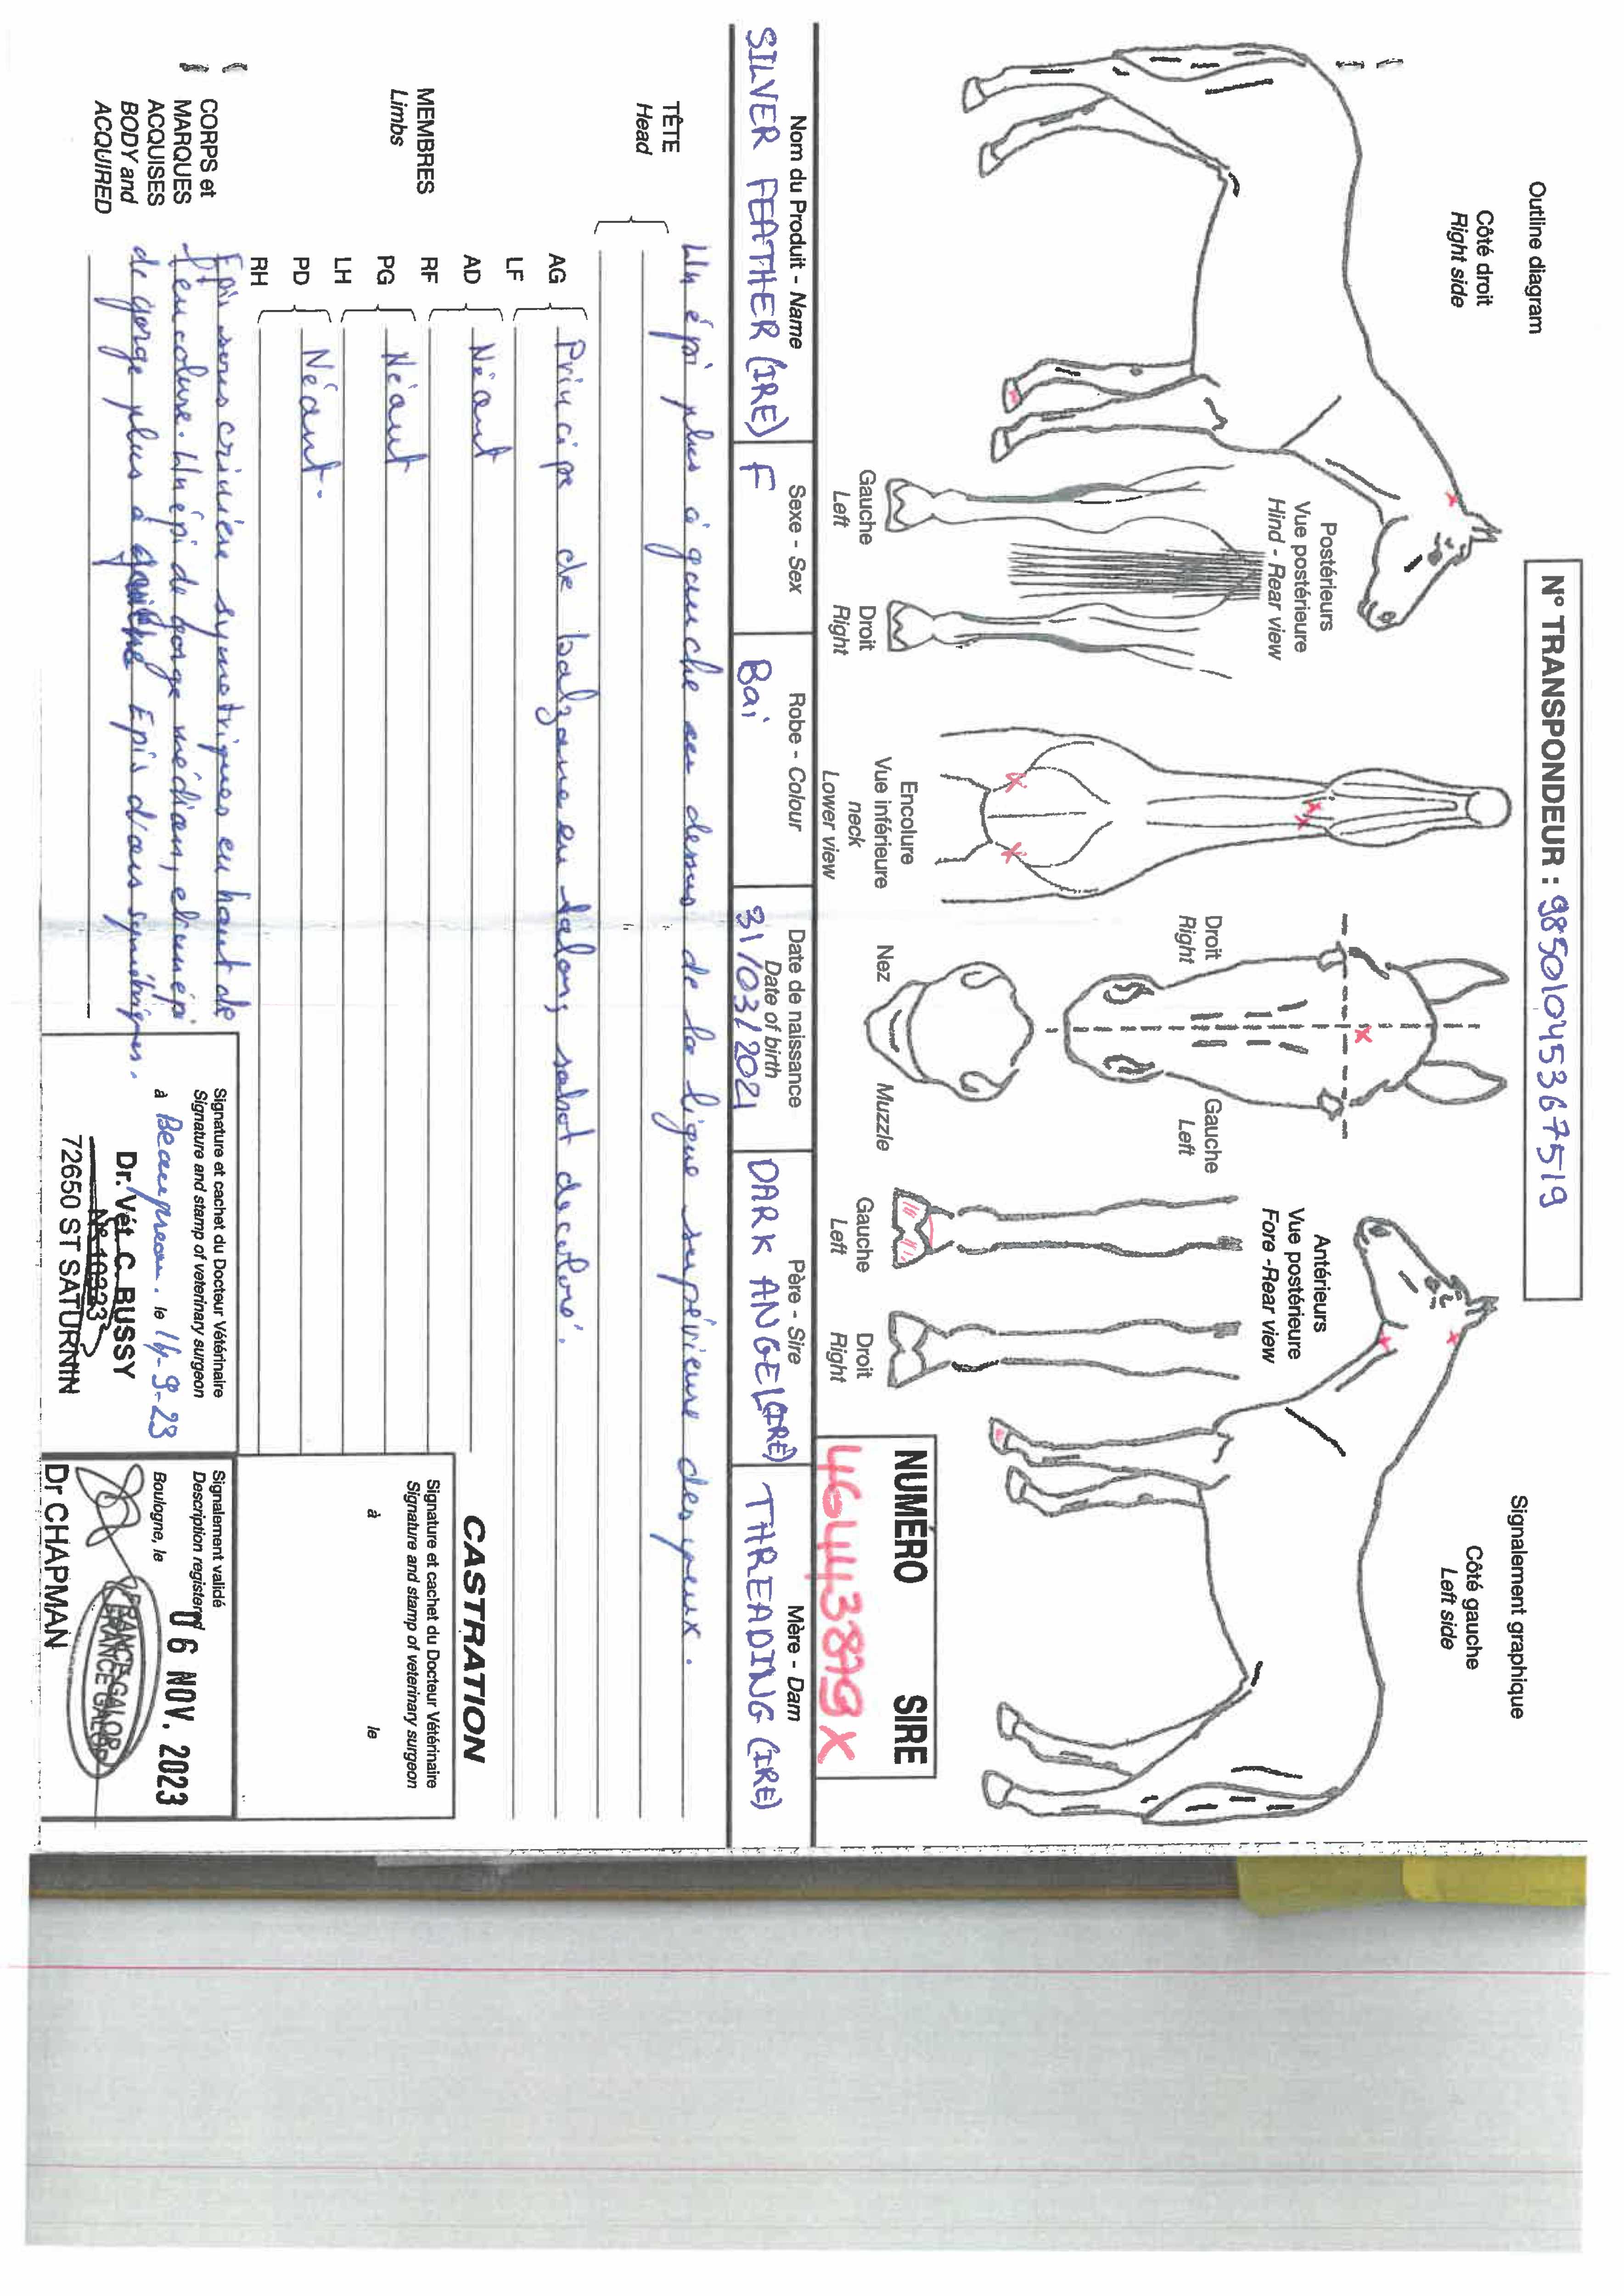 Outline diagram
N° TRANSPONDEUR : 985010045367519
Signalement graphique
Côté droit
Right side
Côté gauche
Left side
Postérieurs
Vue postérieure
Hind - Rear view
Gauche
Left
Droit
Right
Encolure
Vue inférieure
neck
Lower view
Droit
Right
Gauche
Left
Nez
Muzzle
Antérieurs
Vue postérieure
Fore -Rear view
Gauche
Left
Droit
Right
NUMERO SIRE
Nom du Produit - Name
Sexe - Sex
Robe - Colour
Date de naissance
Date of birth
Père - Sire
Mère - Dam
SILVER FEATHER (IRE)
F
Bai
31/03/2021
DARK ANGEL (IRE)
THREADING (IRE)
TÊTE
Head
Un épi plus à gauche au dessus de la ligne supérieure des yeux.
MEMBRES
Limbs
AG
LF
Principe de balzane en talons, sabot décoloré.
AD
RF
Néant
PG
LH
Néant
PD
RH
Néant.
CORPS et
MARQUES
ACQUISES
BODY and
ACQUIRED
Epis sous crinière symétriques en haut de
l'encolure. Un épi de gorge médian, et un épi
de gorge plus à gauche Epis d'ars symétriques.
CASTRATION
Signature et cachet du Docteur Vétérinaire
Signature and stamp of veterinary surgeon
à
le
Signature et cachet du Docteur Vétérinaire
Signature and stamp of veterinary surgeon
à Beaupreau. le 14-9-23
Dr. Vét. C. BUSSY
72650 ST SATURNIN
Signalement validé
Description registered
Boulogne, le
06 NOV. 2023
FRANCE GALOP
FRANCE GALOP
Dr CHAPMAN